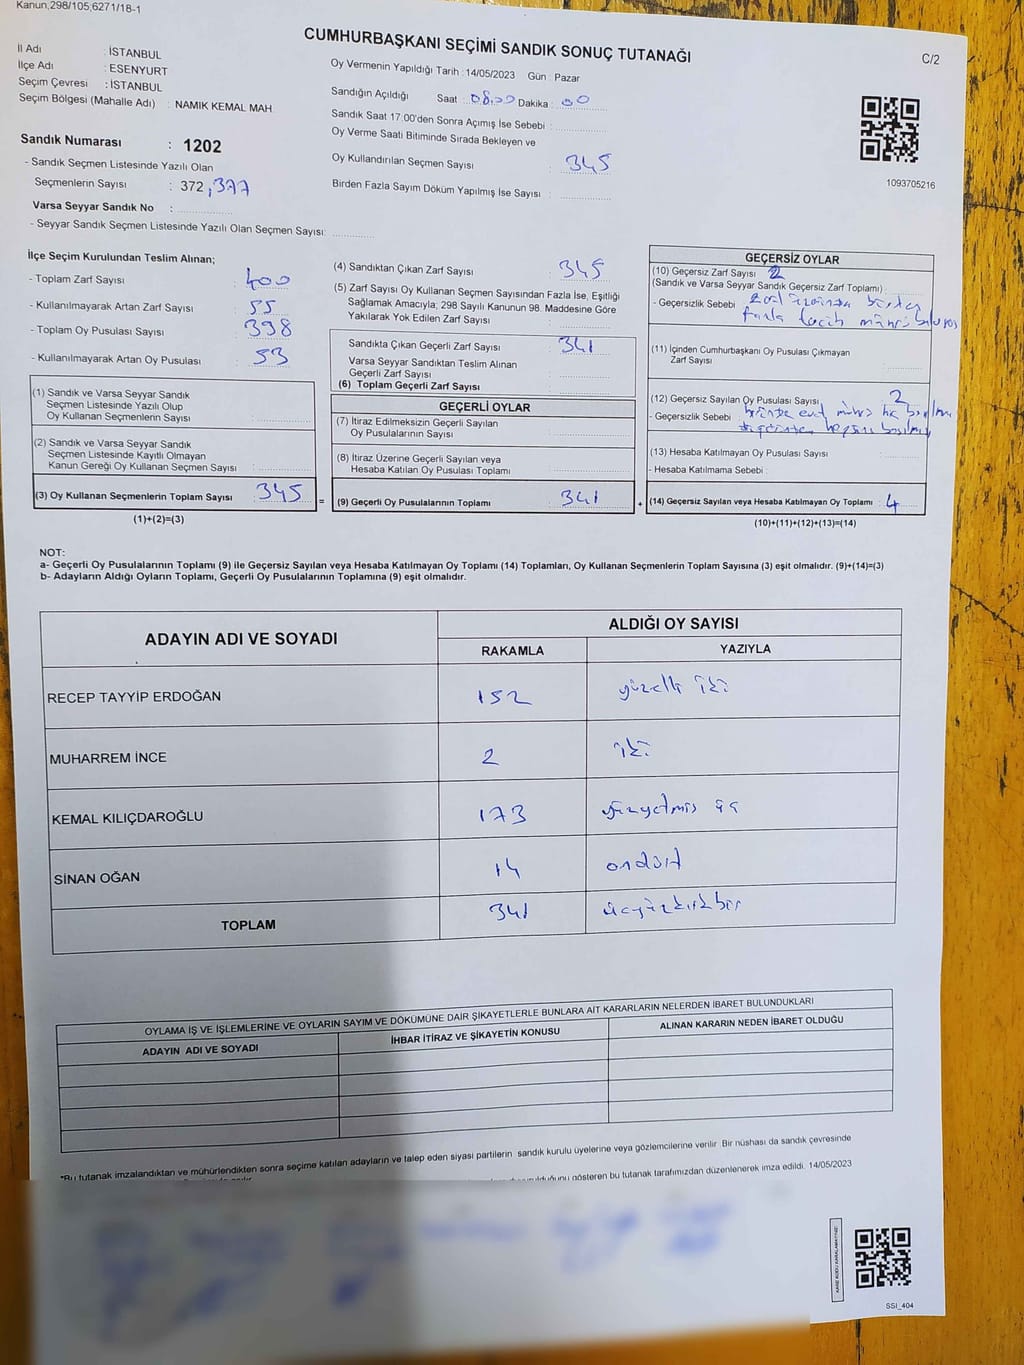 Kanun,298/105;6271/18-1
CUMHURBAŞKANI SEÇİMİ SANDIK SONUÇ TUTANAĞI
C/2
İl Adı : İSTANBUL
İlçe Adı : ESENYURT
Seçim Çevresi : İSTANBUL
Seçim Bölgesi (Mahalle Adı) : NAMIK KEMAL MAH
Sandık Numarası : 1202
- Sandık Seçmen Listesinde Yazılı Olan
Seçmenlerin Sayısı : 372, 377
Varsa Seyyar Sandık No :
- Seyyar Sandık Seçmen Listesinde Yazılı Olan Seçmen Sayısı:
Oy Vermenin Yapıldığı Tarih : 14/05/2023 Gün : Pazar
Sandığın Açıldığı Saat : 08.00 Dakika : 00
Sandık Saat 17:00'den Sonra Açımış İse Sebebi :
Oy Verme Saati Bitiminde Sırada Bekleyen ve
Oy Kullandırılan Seçmen Sayısı : 345
Birden Fazla Sayım Döküm Yapılmış İse Sayısı :
1093705216
İlçe Seçim Kurulundan Teslim Alınan;
- Toplam Zarf Sayısı : 400
- Kullanılmayarak Artan Zarf Sayısı : 55
- Toplam Oy Pusulası Sayısı : 398
- Kullanılmayarak Artan Oy Pusulası : 53
(1) Sandık ve Varsa Seyyar Sandık
Seçmen Listesinde Yazılı Olup
Oy Kullanan Seçmenlerin Sayısı :
(2) Sandık ve Varsa Seyyar Sandık
Seçmen Listesinde Kayıtlı Olmayan
Kanun Gereği Oy Kullanan Seçmen Sayısı :
(3) Oy Kullanan Seçmenlerin Toplam Sayısı : 345 =
(1)+(2)=(3)
(4) Sandıktan Çıkan Zarf Sayısı : 345
(5) Zarf Sayısı Oy Kullanan Seçmen Sayısından Fazla İse, Eşitliği
Sağlamak Amacıyla; 298 Sayılı Kanunun 98. Maddesine Göre
Yakılarak Yok Edilen Zarf Sayısı :
Sandıkta Çıkan Geçerli Zarf Sayısı : 341
Varsa Seyyar Sandıktan Teslim Alınan
Geçerli Zarf Sayısı :
(6) Toplam Geçerli Zarf Sayısı :
GEÇERLİ OYLAR
(7) İtiraz Edilmeksizin Geçerli Sayılan
Oy Pusulalarının Sayısı :
(8) İtiraz Üzerine Geçerli Sayılan veya
Hesaba Katılan Oy Pusulası Toplamı :
(9) Geçerli Oy Pusulalarının Toplamı : 341 +
GEÇERSİZ OYLAR
(10) Geçersiz Zarf Sayısı 2
(Sandık ve Varsa Seyyar Sandık Geçersiz Zarf Toplamı) :
- Geçersizlik Sebebi :
fazla
(11) İçinden Cumhurbaşkanı Oy Pusulası Çıkmayan
Zarf Sayısı :
(12) Geçersiz Sayılan Oy Pusulası Sayısı : 2
- Geçersizlik Sebebi : birinde evet
(13) Hesaba Katılmayan Oy Pusulası Sayısı :
- Hesaba Katılmama Sebebi :
(14) Geçersiz Sayılan veya Hesaba Katılmayan Oy Toplamı : 4
(10)+(11)+(12)+(13)=(14)
NOT:
a- Geçerli Oy Pusulalarının Toplamı (9) ile Geçersiz Sayılan veya Hesaba Katılmayan Oy Toplamı (14) Toplamları, Oy Kullanan Seçmenlerin Toplam Sayısına (3) eşit olmalıdır. (9)+(14)=(3)
b- Adayların Aldığı Oyların Toplamı, Geçerli Oy Pusulalarının Toplamına (9) eşit olmalıdır.
ADAYIN ADI VE SOYADI
ALDIĞI OY SAYISI
RAKAMLA YAZIYLA
RECEP TAYYİP ERDOĞAN 152 yüzelli iki
MUHARREM İNCE 2 iki
KEMAL KILIÇDAROĞLU 173 yüzyetmiş üç
SİNAN OĞAN 14 ondört
TOPLAM 341 üçyüzkırkbir
OYLAMA İŞ VE İŞLEMLERİNE VE OYLARIN SAYIM VE DÖKÜMÜNE DAİR ŞİKAYETLERLE BUNLARA AİT KARARLARIN NELERDEN İBARET BULUNDUKLARI
ADAYIN ADI VE SOYADI İHBAR İTİRAZ VE ŞİKAYETİN KONUSU ALINAN KARARIN NEDEN İBARET OLDUĞU
*Bu tutanak imzalandıktan ve mühürlendikten sonra seçime katılan adayların ve talep eden siyasi partilerin sandık kurulu üyelerine veya gözlemcilerine verilir. Bir nüshası da sandık çevresinde
gösteren bu tutanak tarafımızdan düzenlenerek imza edildi. 14/05/2023
KARE KODU KARALAMAYINIZ!
SSI_404